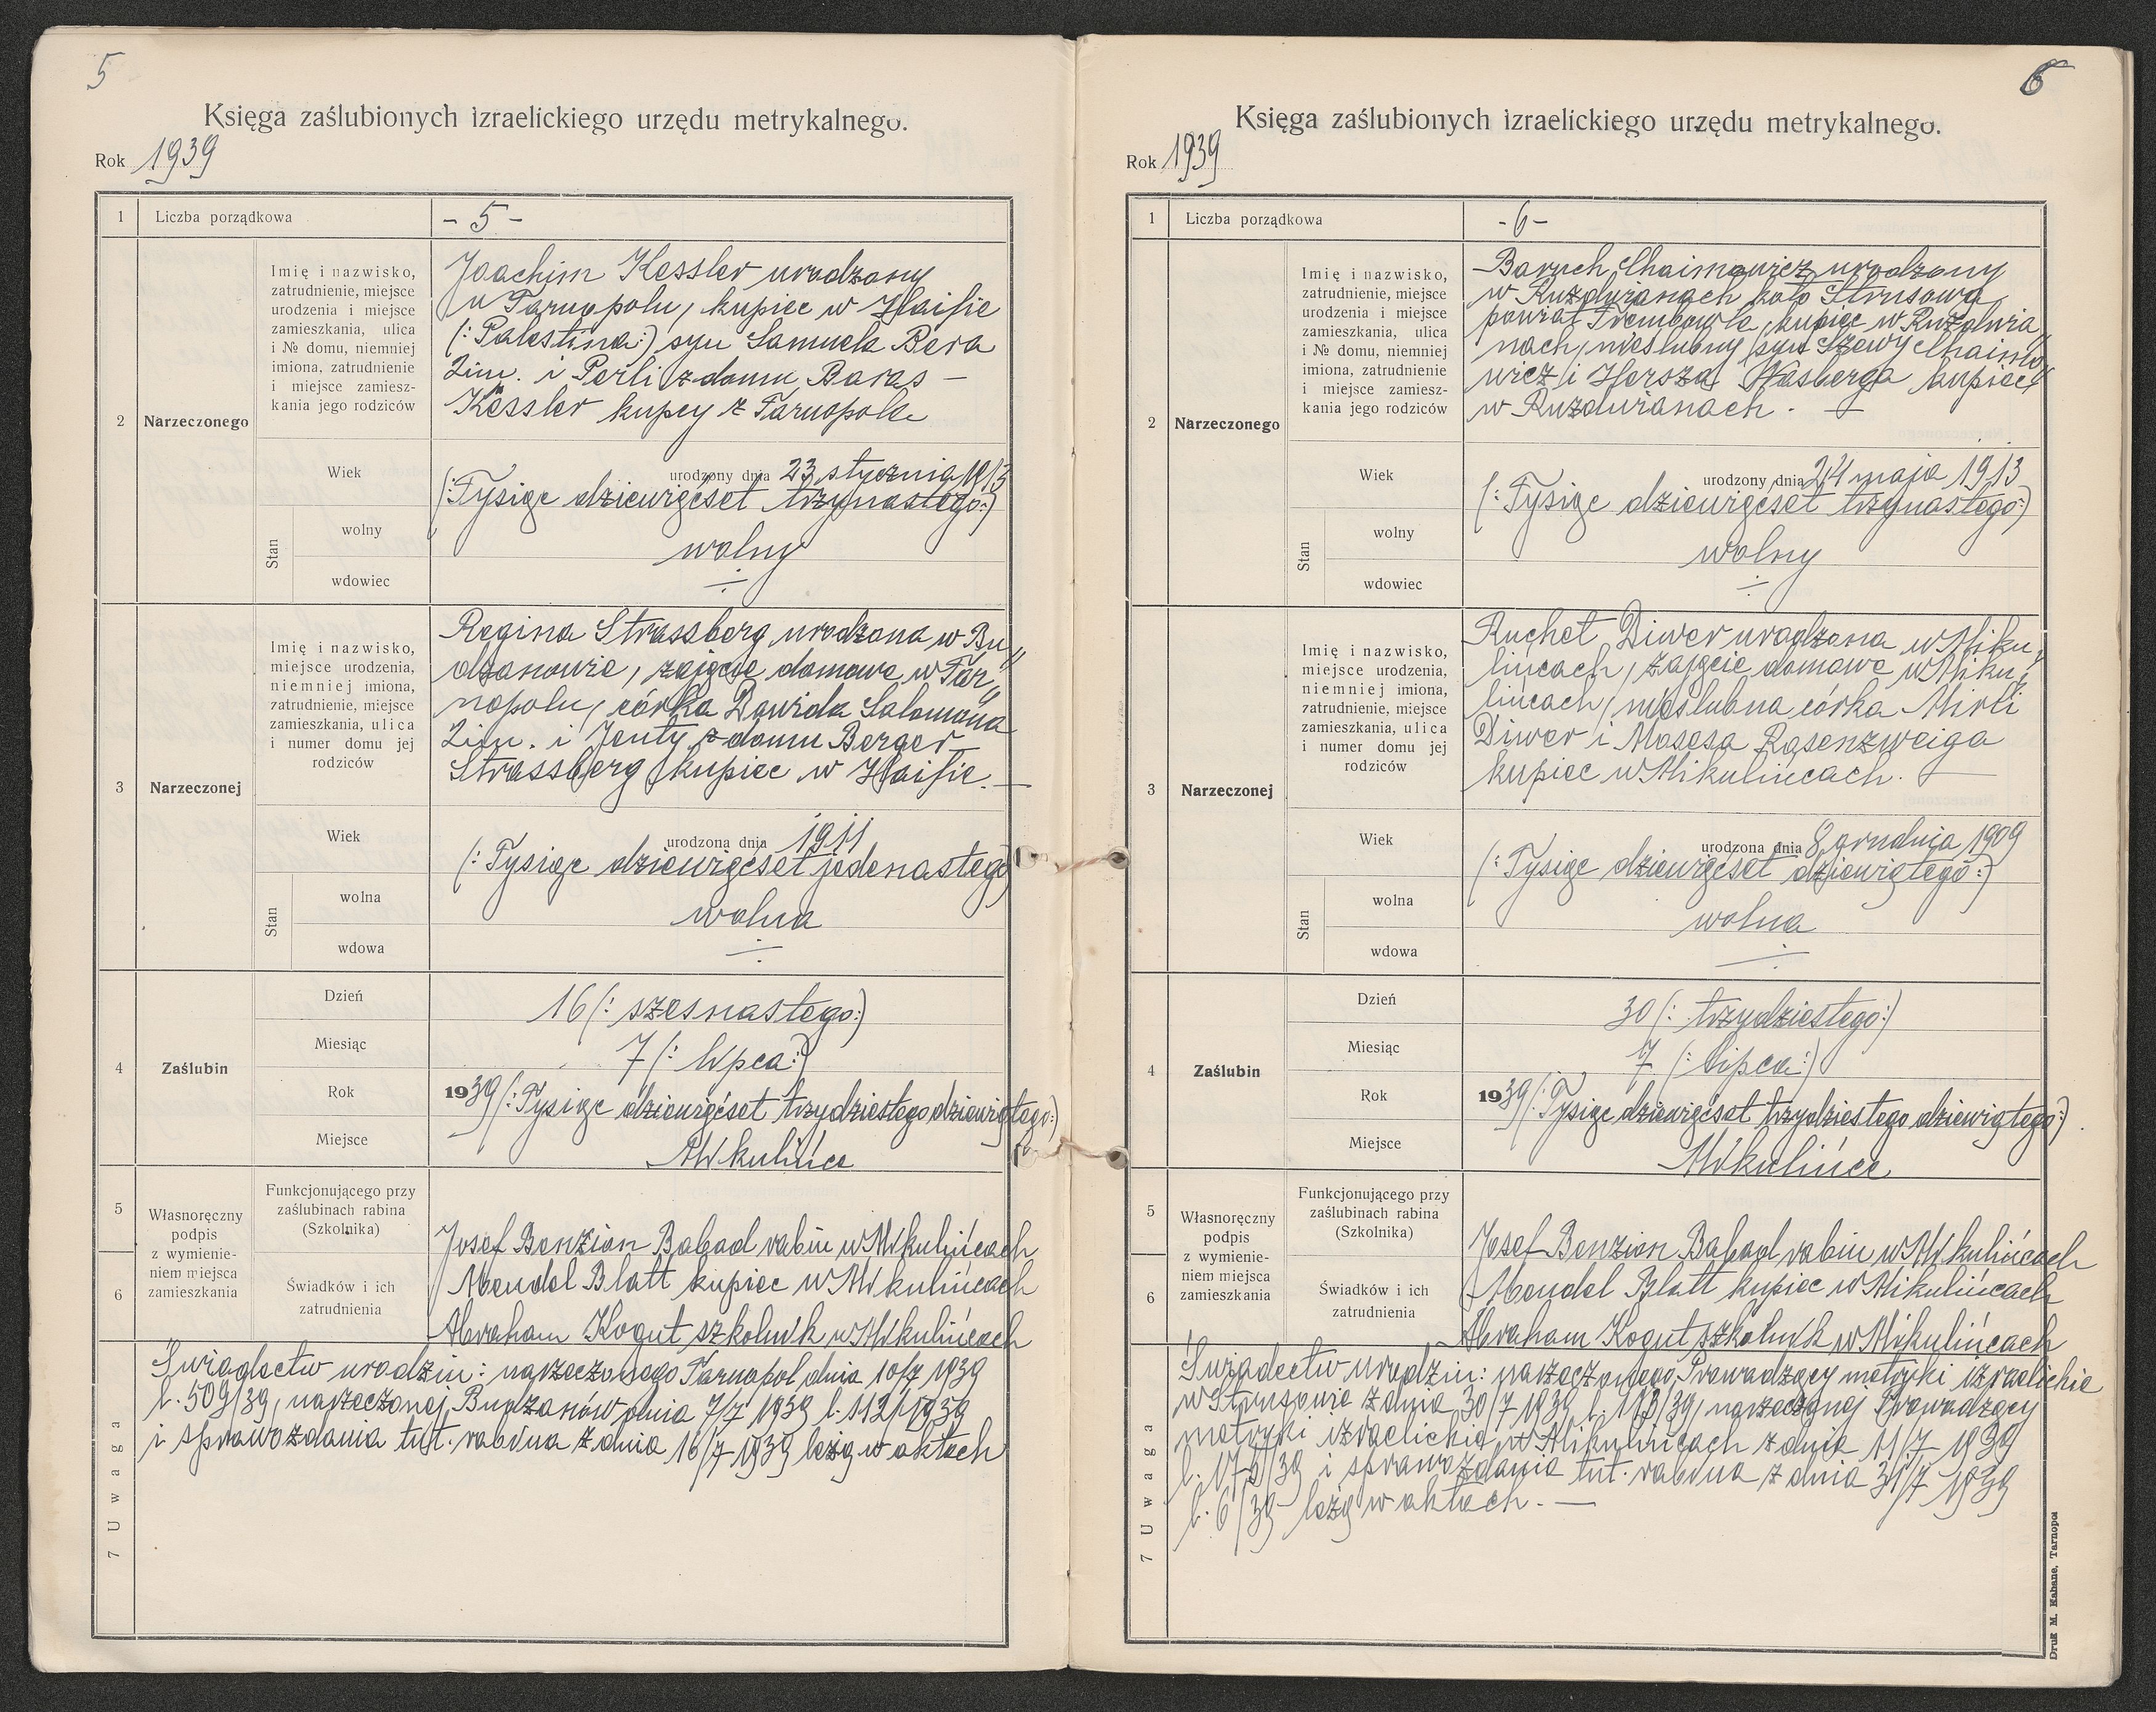 5
Księga zaślubionych izraelickiego urzędu metrykalnego.
Rok 1939
1 Liczba porządkowa - 5 -
2 Narzeczonego
Imię i nazwisko,
zatrudnienie, miejsce
urodzenia i miejsce
zamieszkania, ulica
i № domu, niemniej
imiona, zatrudnienie
i miejsce zamiesz-
kania jego rodziców
Joachim Kessler urodzony
w Tarnopolu, kupiec w Haifie
(: Palestina:) syn Samuela Bera
2im. i Perli z domu Baras –
Kessler kupcy z Tarnopola
Wiek
urodzony dnia 23 stycznia 1913
(: Tysiąc dziewięćset trzynastego:)
Stan
wolny
wolny
wdowiec
3 Narzeczonej
Imię i nazwisko,
miejsce urodzenia,
niemniej imiona,
zatrudnienie, miejsce
zamieszkania, ulica
i numer domu jej
rodziców
Regina Strassberg urodzona w Bu„
dzanowie, zajęcie domowe w Tar„
nopolu, córka Dawida Salomona
2im. i Jenty z domu Berger
Strassberg kupiec w Haifie. —
Wiek
urodzona dnia 1911
(: Tysiąc dziewięćset jedenastego
Stan
wolna
wolna
wdowa
4 Zaślubin
Dzień 16 (: szesnastego:)
Miesiąc 7 (: lipca:)
Rok 1939 (: Tysiąc dziewięćset trzydziestego dziewiątego:)
Miejsce Mikulińce
5
6
Własnoręczny
podpis
z wymienie-
niem miejsca
zamieszkania
Funkcjonującego przy
zaślubinach rabina
(Szkolnika)
Świadków i ich
zatrudnienia
Josef Benzion Babad rabin w Mikulińcach
Mendel Blatt kupiec w Mikulińcach
Abraham Kogut szkolnik w Mikulińcach
7 Uwaga
Świadectw urodzin: narzeczonego Tarnopol dnia 10/7 1939
l. 509/39, narzeczonej Budzanów dnia 7/7 1939 l. 112/1939
i sprawozdania tut. rabina z dnia 16/7 1939 leżą w aktach
6
Księga zaślubionych izraelickiego urzędu metrykalnego.
Rok 1939
1 Liczba porządkowa - 6 -
2 Narzeczonego
Imię i nazwisko,
zatrudnienie, miejsce
urodzenia i miejsce
zamieszkania, ulica
i № domu, niemniej
imiona, zatrudnienie
i miejsce zamiesz-
kania jego rodziców
Baruch Chaimowicz urodzony
w Ruzdwianach koło Strusowa
powiat Trembowla, kupiec w Ruzdwia„
nach, nieślubny syn Szewy Chaimo„
wicz i Hersza kupiec
w Ruzdwianach. —
Wiek
urodzony dnia 24 maja 1913
(: Tysiąc dziewięćset trzynastego:)
Stan
wolny
wolny
wdowiec
3 Narzeczonej
Imię i nazwisko,
miejsce urodzenia,
niemniej imiona,
zatrudnienie, miejsce
zamieszkania, ulica
i numer domu jej
rodziców
Ruchel Diwer urodzona w Miku„
lińcach, zajęcie domowe w Miku„
lińcach, nieślubna córka Mirli
Diwer i Mosesa Rosenzweiga
kupiec w Mikulińcach. —
Wiek
urodzona dnia 8 grudnia 1909
(: Tysiąc dziewięćset dziewiątego:)
Stan
wolna
wolna
wdowa
4 Zaślubin
Dzień 30 (: trzydziestego:)
Miesiąc 7 (: lipca:)
Rok 1939 (: Tysiąc dziewięćset trzydziestego dziewiątego:)
Miejsce Mikulińce
5
6
Własnoręczny
podpis
z wymienie-
niem miejsca
zamieszkania
Funkcjonującego przy
zaślubinach rabina
(Szkolnika)
Świadków i ich
zatrudnienia
Josef Benzion Babad rabin w Mikulińcach
Mendel Blatt kupiec w Mikulińcach
Abraham Kogut szkolnik w Mikulińcach
7 Uwaga
Świadectw urodzin: narzeczonego, Prowadzący metryki izraelickie
w Strusowie z dnia 30/7 1939 l. 113/39, narzeczonej Prowadzący
metryki izraelickie w Mikulińcach z dnia 11/7 1939
l. /39 i sprawozdania tut. rabina z dnia 31/7 1939
l. 6/39 leżą w aktach. —
Druk M. Kahane, Tarnopol